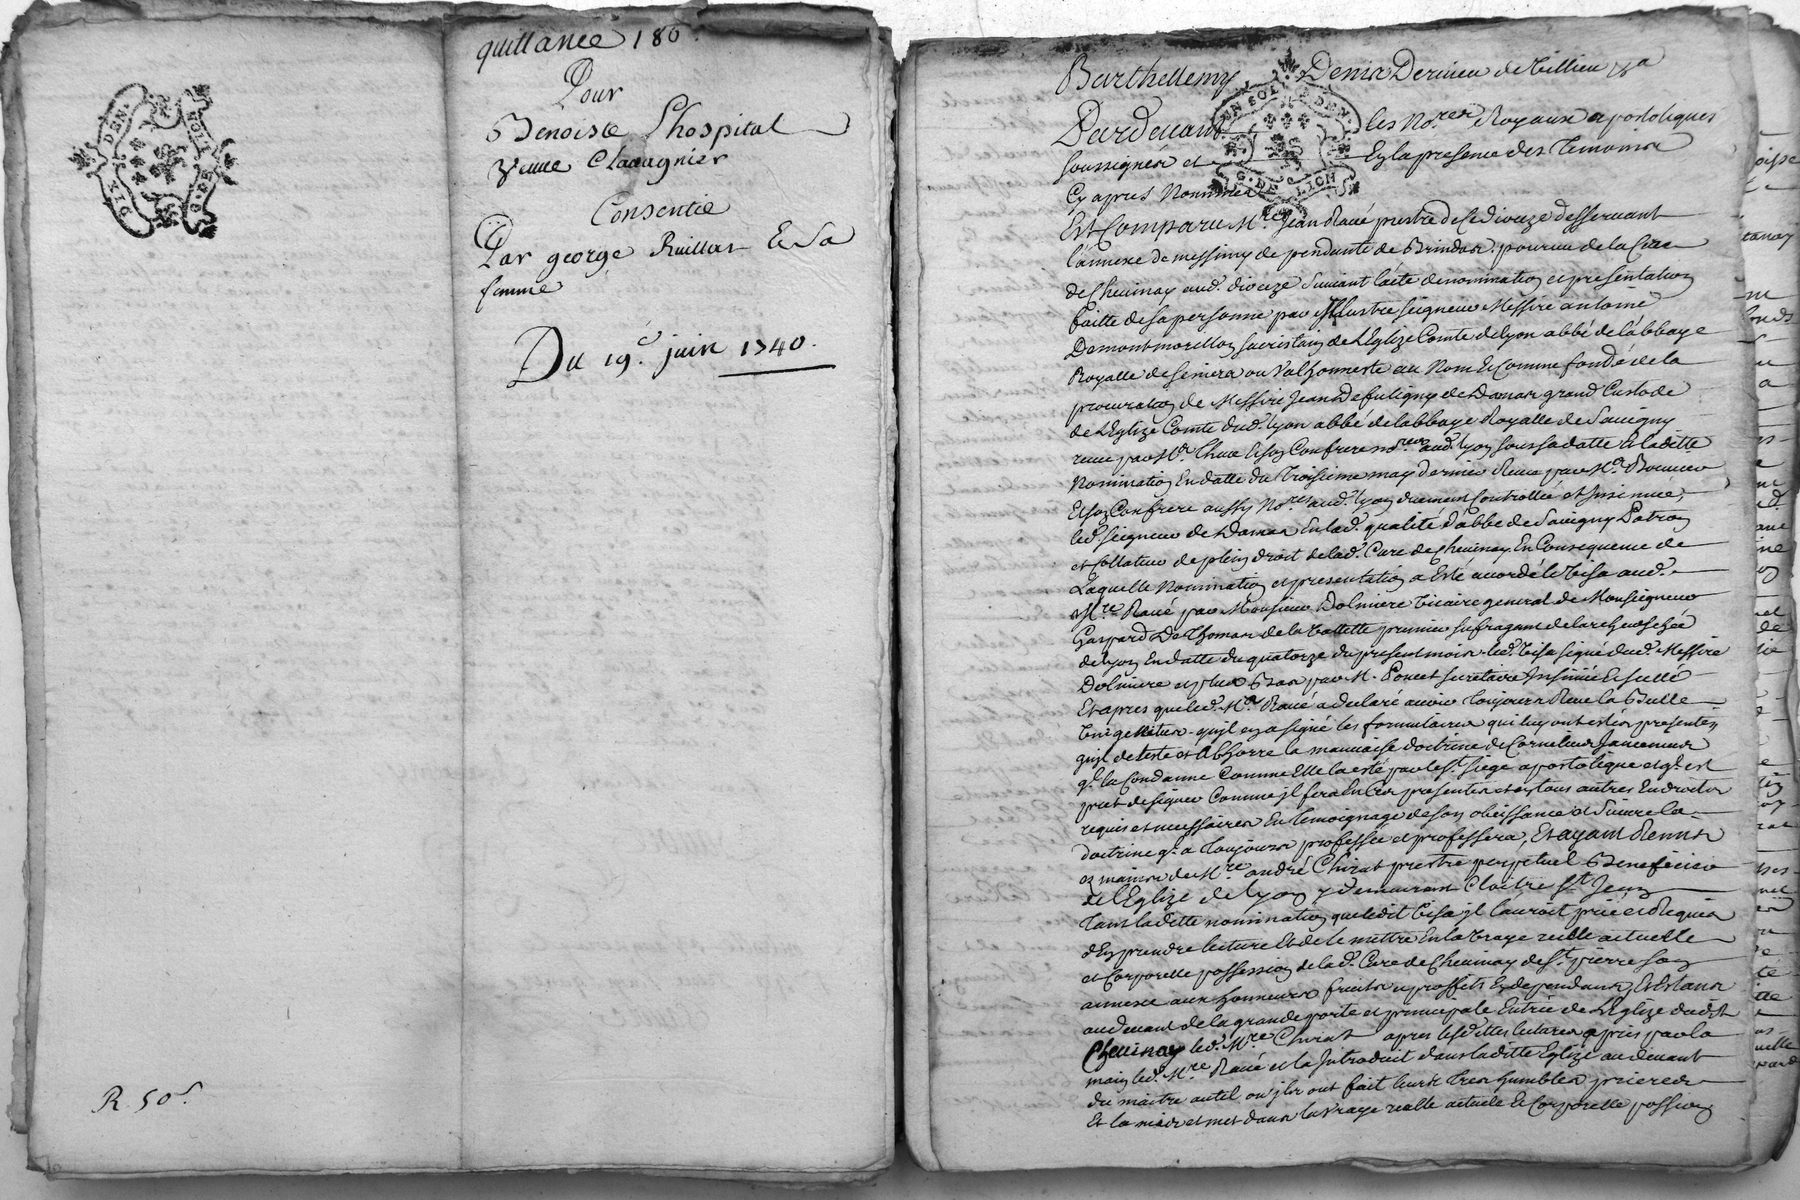 quittance 180#
Pour
Benoiste Lhospital
veuve Chavagnier
Consentie
Par george Ruillat Et Sa
femme
Du 19.e juin 1740.
R. 50s.
DIX DEN.
G. DE LION
Barthellemy Denis Dervieu de Villieu
Pardevant les No.res Royaux apostoliques
soussignés et En la presence des Temoins
Cy apres Nommés
Est Comparu M.re Jean Raué prestre de Ce dioceze desservant
l'annexe de messimy de pendante de Brindas, pourvu de la Cure
de Chevinay aud. dioceze Suivant l'acte de nomination et presentation
faitte de sa personne par Illustre seigneur Messire antoine
De montmorillon sacristain de L'Eglize Comte de Lyon abbé de l'abbaye
Royalle de au Nom Et Comme fondé de la
procuration de Messire Jean De fuligny de Damas grand Custode
de L'Eglize Comte dud. lyon abbé de labbaye Royalle de Savigny
receue par M.e Thuc Et son Confrere no.res aud. lyon sous sa datte Et laditte
Nomination En datte du Troisieme may dernier Receue par M.e
Et son Confrere aussy No.res aud. lyon duement Controllée et Insinuée,
led. seigneur de Damas En lad. qualité d'abbé de Savigny Patron
et Collateur de plein droit de lad. Cure de Chevinay En Consequence de
Laquelle Nomination et presentation a Esté accordé le Visa aud.
M.re Raué par Monsieur Dolniere Vicaire general de Monseigneur
Gaspard De Thomas de la Vallette premier sufragant de larchevesché
de lyon En datte du quatorze du present mois led. Visa signé dud. Messire
Dolniere et plus Bas par M. Poncet secretaire Insinüé Et sellé
Et apres que led. M.re Raué a declaré avoir Toujours Receu la Bulle
Unigenitus, quil en a signé les formulaires qui luy ont estés presentés
quil deteste et Abhorre la mauvaise doctrine de Cornelius Jansenius
q.l la Condamne Comme Elle la esté par le St. siege apostolique et q.l est
prest de signer Comme il fera En Ces presentes et en tous autres Endroits
requis et necessaires En Temoignage de son obeissance et Suivre la
doctrine q.l a Toujours professée et professera, Et ayant Remis
ez mains de M.re andré Chirat prestre perpetuel Beneficier
de l'Eglize de lyon y demeurant Cloitre St. Jean
Tant laditte nomination que ledit Visa il l'auroit prié et Requis
d'En prendre lecture Et de le mettre En la Vraye reelle actuelle
et Corporelle possession de lad. Cure de Chevinay de St. pierre son
annexe aux honneurs fruits et proffets En dependants, Et Estans
au devant de la grande porte et principale Entrée de L'Eglize dudit
Chevinay led. M.re Chirat apres lesdittes lectures a pris par la
main led. M.re Raué et la Introduit dans laditte Eglize au devant
du maitre autel ou ils ont fait leurs Tres humbles prieres
Et la mis et met dans la vraye reelle actuele Et Corporelle possion